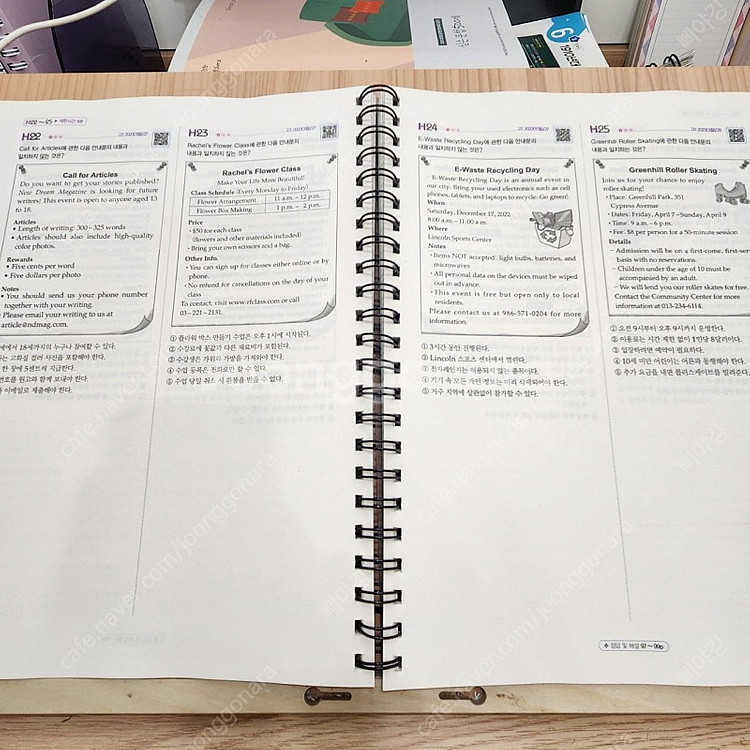 H22 ~ 25 ▸ 제한시간 8분
H22 ★★★
Call for Articles에 관한 다음 안내문의 내용과
일치하지 않는 것은?
Call for Articles
Do you want to get your stories published?
New Dream Magazine is looking for future
writers! This event is open to anyone aged 13
to 18.
Articles
• Length of writing: 300–325 words
• Articles should also include high-quality
color photos.
Rewards
• Five cents per word
• Five dollars per photo
Notes
• You should send us your phone number
together with your writing.
• Please email your writing to us at
article@ndmag.com.
18세까지의 누구나 참여할 수 있다.
고화질 컬러 사진을 포함해야 한다.
한 장에 5센트씩 지급한다.
원고와 함께 보내야 한다.
이메일로 제출해야 한다.
H23 ★★★
Rachel's Flower Class에 관한 다음 안내문의
내용과 일치하지 않는 것은?
Rachel's Flower Class
Make Your Life More Beautiful!
Class Schedule (Every Monday to Friday)
Flower Arrangement 11 a.m. – 12 p.m.
Flower Box Making 1 p.m. – 2 p.m.
Price
• $50 for each class
(flowers and other materials included)
• Bring your own scissors and a bag.
Other Info.
• You can sign up for classes either online or by
phone.
• No refund for cancellations on the day of your
class
To contact, visit www.rfclass.com or call
03-221-2131.
① 플라워 박스 만들기 수업은 오후 1시에 시작된다.
② 수강료에 꽃값과 다른 재료비가 포함된다.
③ 수강생은 가위와 가방을 가져와야 한다.
④ 수업 등록은 전화로만 할 수 있다.
⑤ 수업 당일 취소 시 환불을 받을 수 없다.
H24 ★★★
E-Waste Recycling Day에 관한 다음 안내문의
내용과 일치하지 않는 것은?
E-Waste Recycling Day
E-Waste Recycling Day is an annual event in
our city. Bring your used electronics such as cell
phones, tablets, and laptops to recycle. Go green!
When
Saturday, December 17, 2022
8:00 a.m. – 11:00 a.m.
Where
Lincoln Sports Center
Notes
• Items NOT accepted: light bulbs, batteries, and
microwaves
• All personal data on the devices must be wiped
out in advance.
• This event is free but open only to local
residents.
Please contact us at 986-571-0204 for more
information.
① 3시간 동안 진행된다.
② Lincoln 스포츠 센터에서 열린다.
③ 전자레인지는 허용되지 않는 품목이다.
④ 기기 속 모든 개인 정보는 미리 삭제되어야 한다.
⑤ 거주 지역에 상관없이 참가할 수 있다.
H25 ★★★
Greenhill Roller Skating에 관한 다음 안내문의
내용과 일치하는 것은?
Greenhill Roller Skating
Join us for your chance to enjoy
roller skating!
• Place: Greenhill Park, 351
Cypress Avenue
• Dates: Friday, April 7 – Sunday, April 9
• Time: 9 a.m. – 6 p.m.
• Fee: $8 per person for a 50-minute session
Details
– Admission will be on a first-come, first-serv
basis with no reservations.
– Children under the age of 10 must be
accompanied by an adult.
– We will lend you our roller skates for free.
Contact the Community Center for more
information at 013-234-6114.
① 오전 9시부터 오후 9시까지 운영한다.
② 이용료는 시간 제한 없이 1인당 8달러이다.
③ 입장하려면 예약이 필요하다.
④ 10세 미만 어린이는 어른과 동행해야 한다.
⑤ 추가 요금을 내면 롤러스케이트를 빌려준다.
정답 및 해설 97~99p
cafe.naver.com/joonggonara